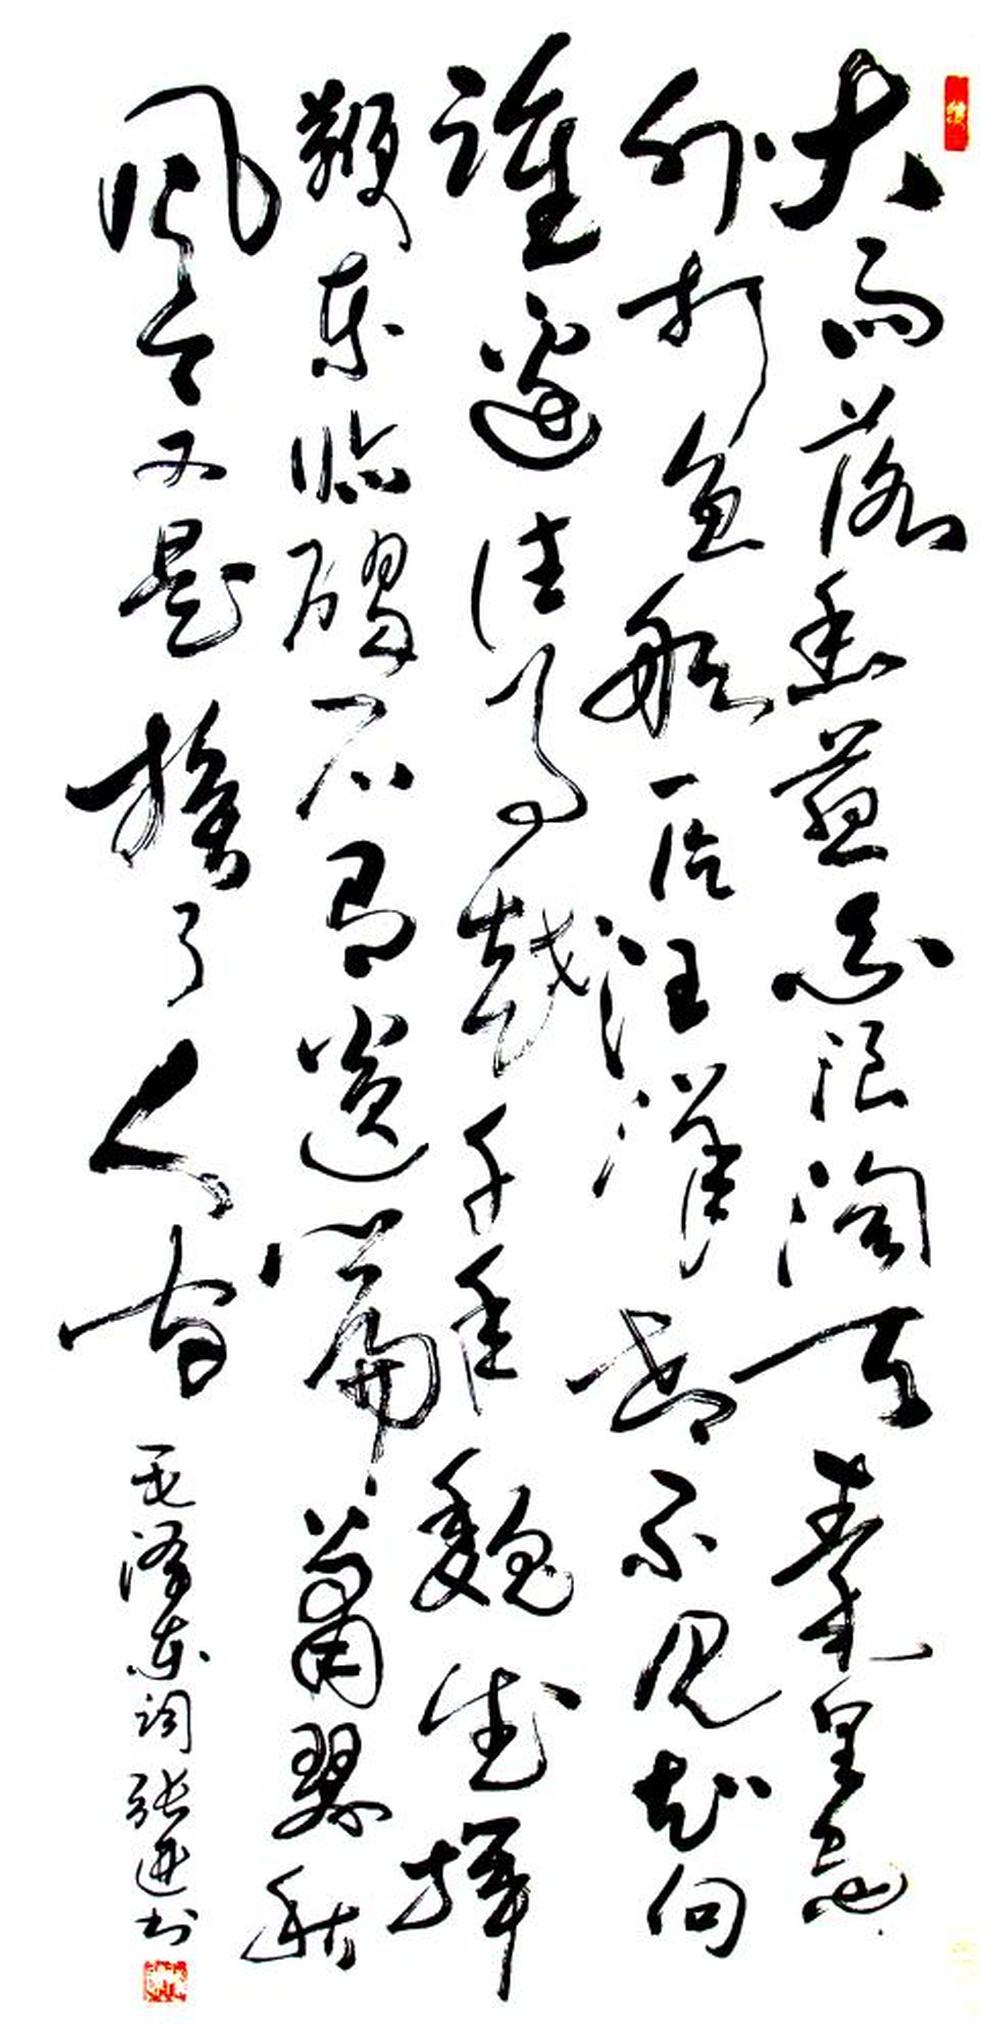 大雨落幽燕白浪淘天秦皇岛
外打鱼船一片汪洋都不见知向
谁边往事越千年魏武挥
鞭东临碣石有遗篇萧瑟秋
风今又是换了人间
毛泽东词张进书